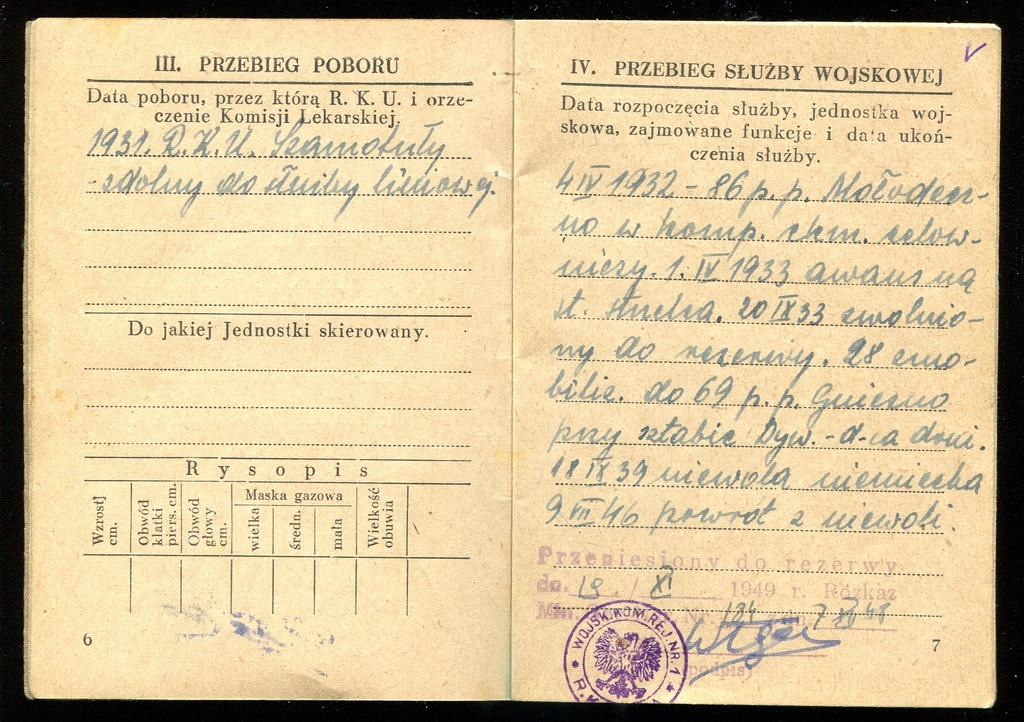 III. PRZEBIEG POBORU
Data poboru, przez którą R. K. U. i orze-
czenie Komisji Lekarskiej.
1931. R.K.U. Szamotuły
- zdolny do służby liniowej.
Do jakiej Jednostki skierowany.
Rysopis
Wzrost cm.
Obwód klatki piers. cm.
Obwód głowy cm.
Maska gazowa
wielka
średn.
mała
Wielkość obuwia
6
IV. PRZEBIEG SŁUŻBY WOJSKOWEJ
Data rozpoczęcia służby, jednostka woj-
skowa, zajmowane funkcje i data ukoń-
czenia służby.
4 IV 1932 - 86 p.p. Mołodecz-
no w komp. ckm. celow-
niczy. 1. IV 1933 awans na
st. strzelca. 20 IX 33 zwolnio-
ny do rezerwy. 28 zmo-
biliz. do 69 p.p. Gniezno
przy sztabie Dyw. - d-ca druż.
18 IX 39 niewola niemiecka
9 VII 46 powrót z niewoli.
Przeniesiony do rezerwy
dn. 19 / XI 1949 r. Rozkaz
Nr. 134 7 XII 48
(podpis)
WOJSK. KOM. REJ. NR. 1
7